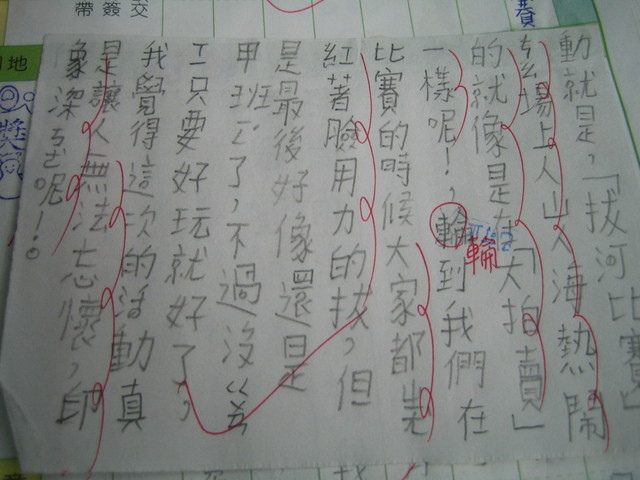 動就是,「拔河比賽」
場上人山人海熱鬧
的就像是在「大拍賣」
一樣呢!,輪到我們在
輪
比賽的時候大家都
紅著臉用力的拔,但
是最後好像還是
甲班了,不過沒
只要好玩就好了,
我覺得這次的活動真
是讓人無法忘懷,印
象深呢!。
帶簽交
賽
地